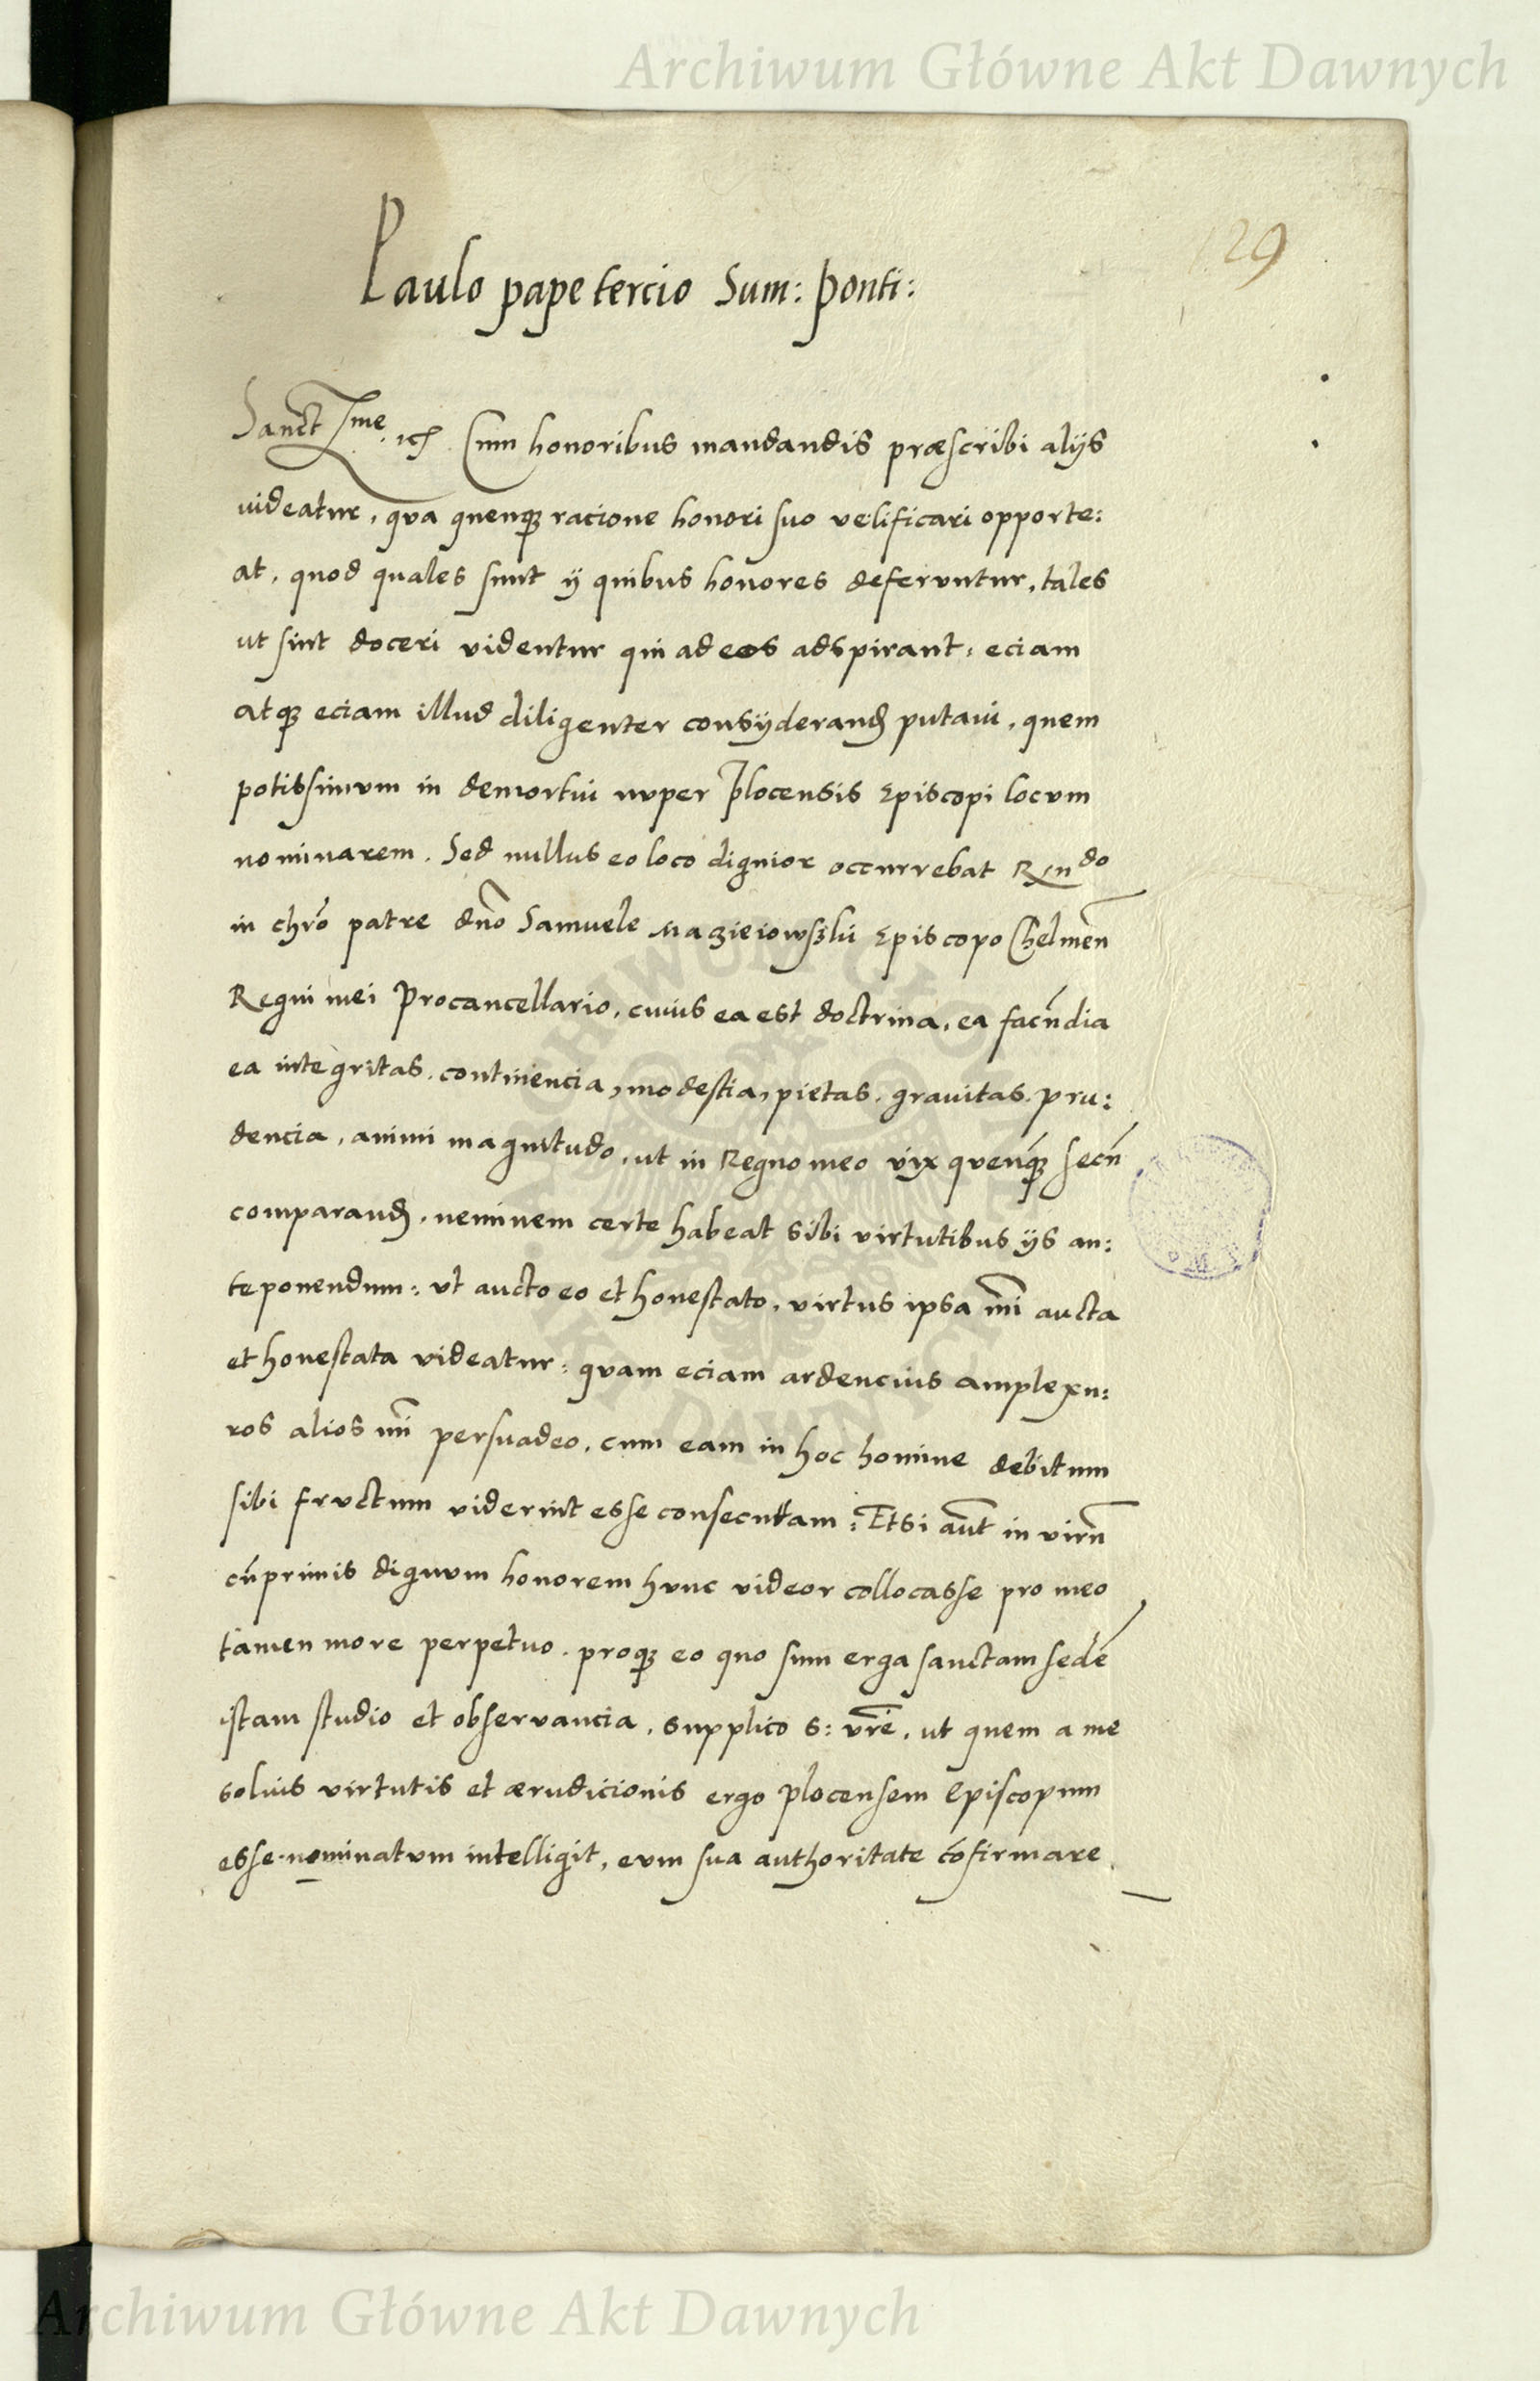 Archiwum Główne Akt Dawnych
129
Paulo pape tercio Sum: Ponti:
Sanct me. Cum honoribus mandandis præscribi alijs
uideatur, qua quenq; racione honori suo velificari opporte:
at, quod quales sunt ij quibus honores deferuntur, tales
ut sint doceri videntur qui ad eos adspirant: eciam
atq; eciam illud diligenter consyderand putaui, quem
potissimum in demortui nuper Plocensis Episcopi locum
nominarem. Sed nullus eo loco dignior occurrebat Rndo
in chro patre dno Samuele Mazieiowszki Episcopo Chelmen
Regni mei Procancellario, cuius ea est doctrina, ea facundia
ea integritas, continencia, modestia, pietas, grauitas, pru:
dencia, animi magnitudo, ut in Regno meo vix quenq; secu
comparand, neminem certe habeat sibi virtutibus ijs an:
teponendum: ut aucto eo et honestato, virtus ipsa mi aucta
et honestata videatur: quam eciam ardencius amplexu:
ros alios mi persuadeo, cum eam in hoc homine debitum
sibi fructum viderint esse consecutam: Etsi aut in viru
cu primis dignum honorem hunc videor collocasse pro meo
tamen more perpetuo, proq; eo quo sum erga sanctam sede
istam studio et obseruancia, supplico S: vre, ut quem a me
solius virtutis et ærudicionis ergo plocensem Episcopum
esse nominatum intelligit, eum sua authoritate cofirmare
Archiwum Główne Akt Dawnych